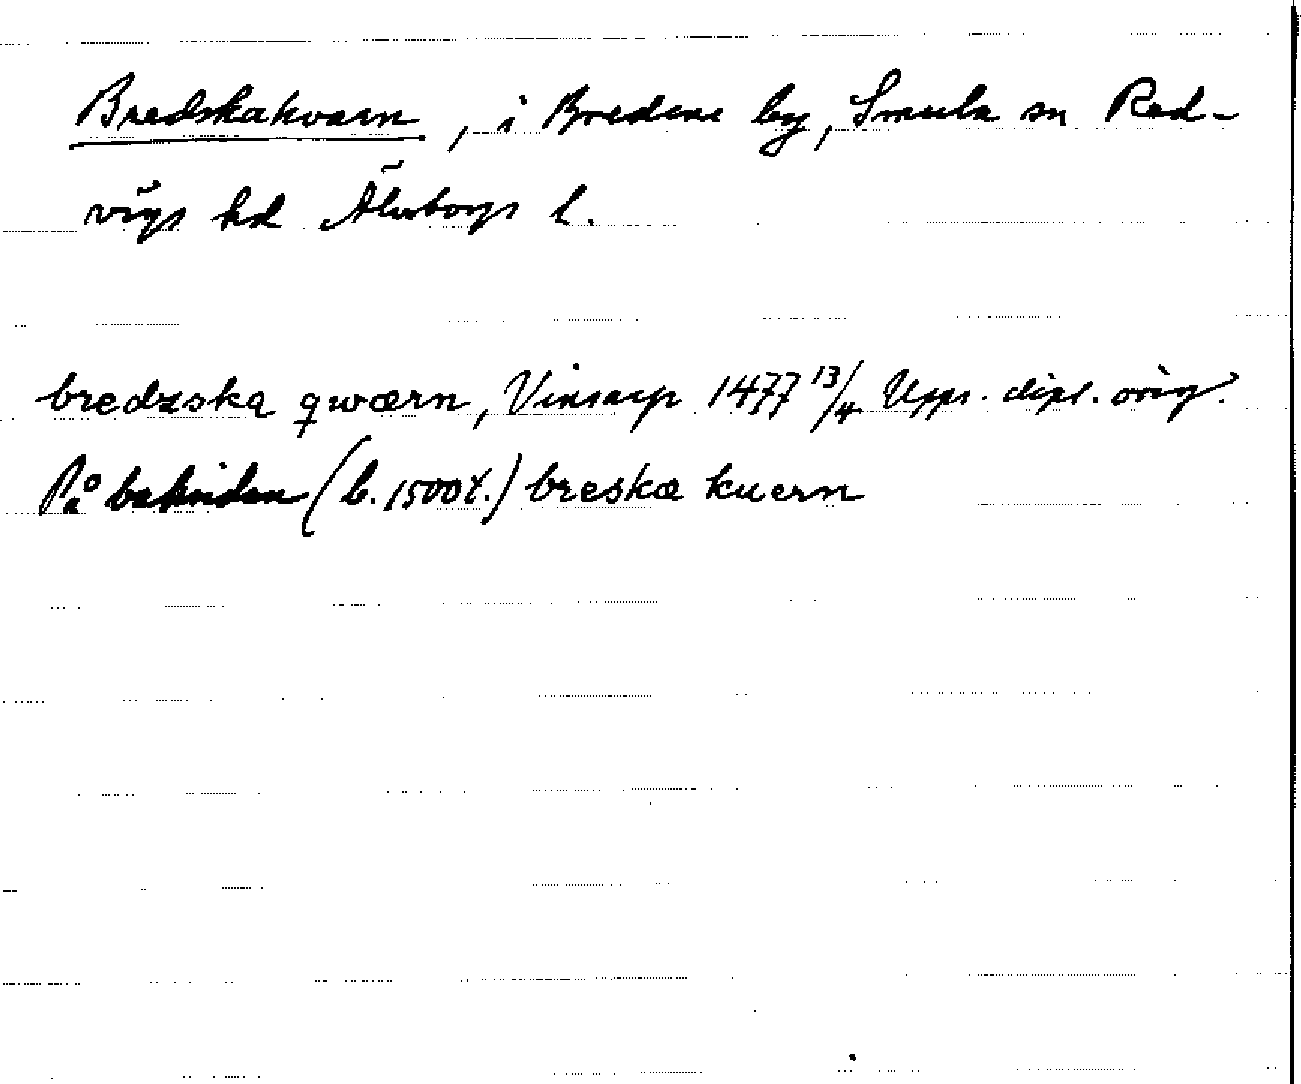 Bredskakvarn, i Bredene by, Smula sn Red-
vägs hd Älvsborgs l.
bredzska qwærn, Vinsarp 1477 13/4 Upps. dipl. orig.
På baksidan (b. 1500t.) breskæ kuern